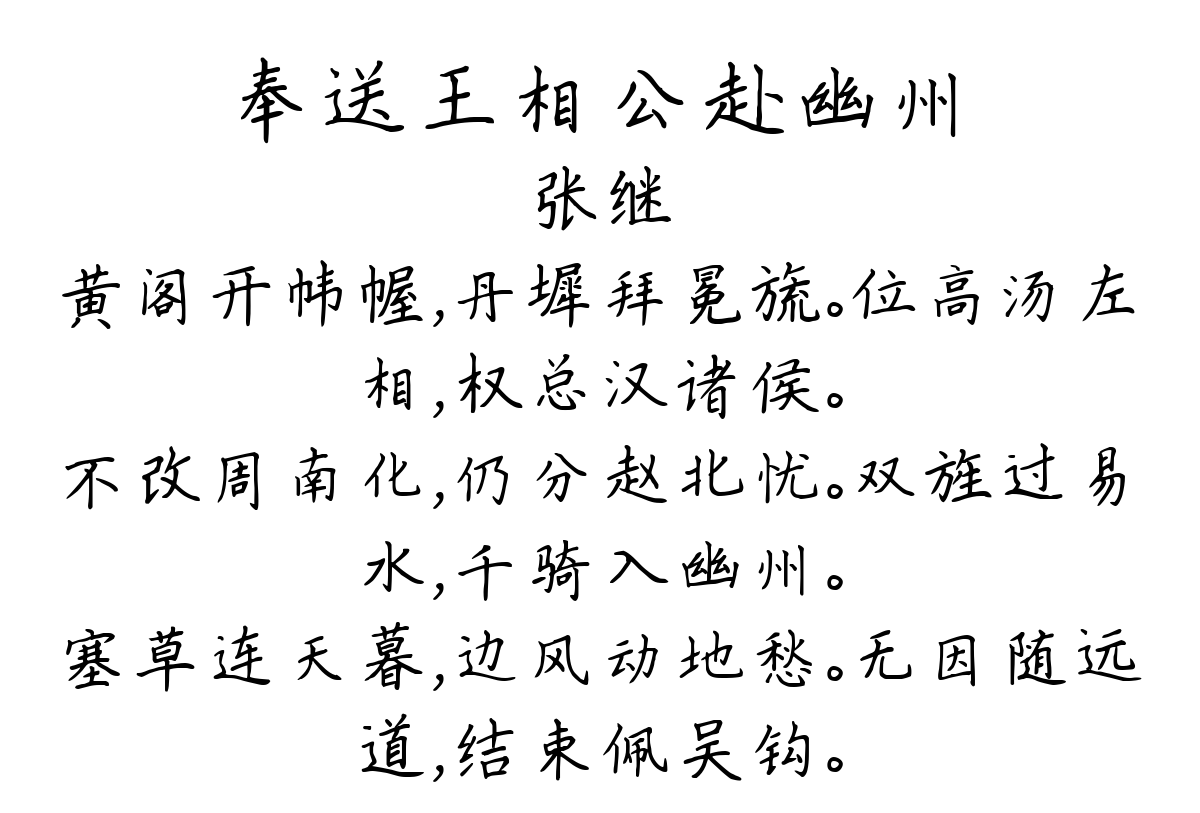 奉送王相公赴幽州
张继
黄阁开帏幄,丹墀拜冕旒。位高汤左
相,权总汉诸侯。
不改周南化,仍分赵北忧。双旌过易
水,千骑入幽州。
塞草连天暮,边风动地愁。无因随远
道,结束佩吴钩。